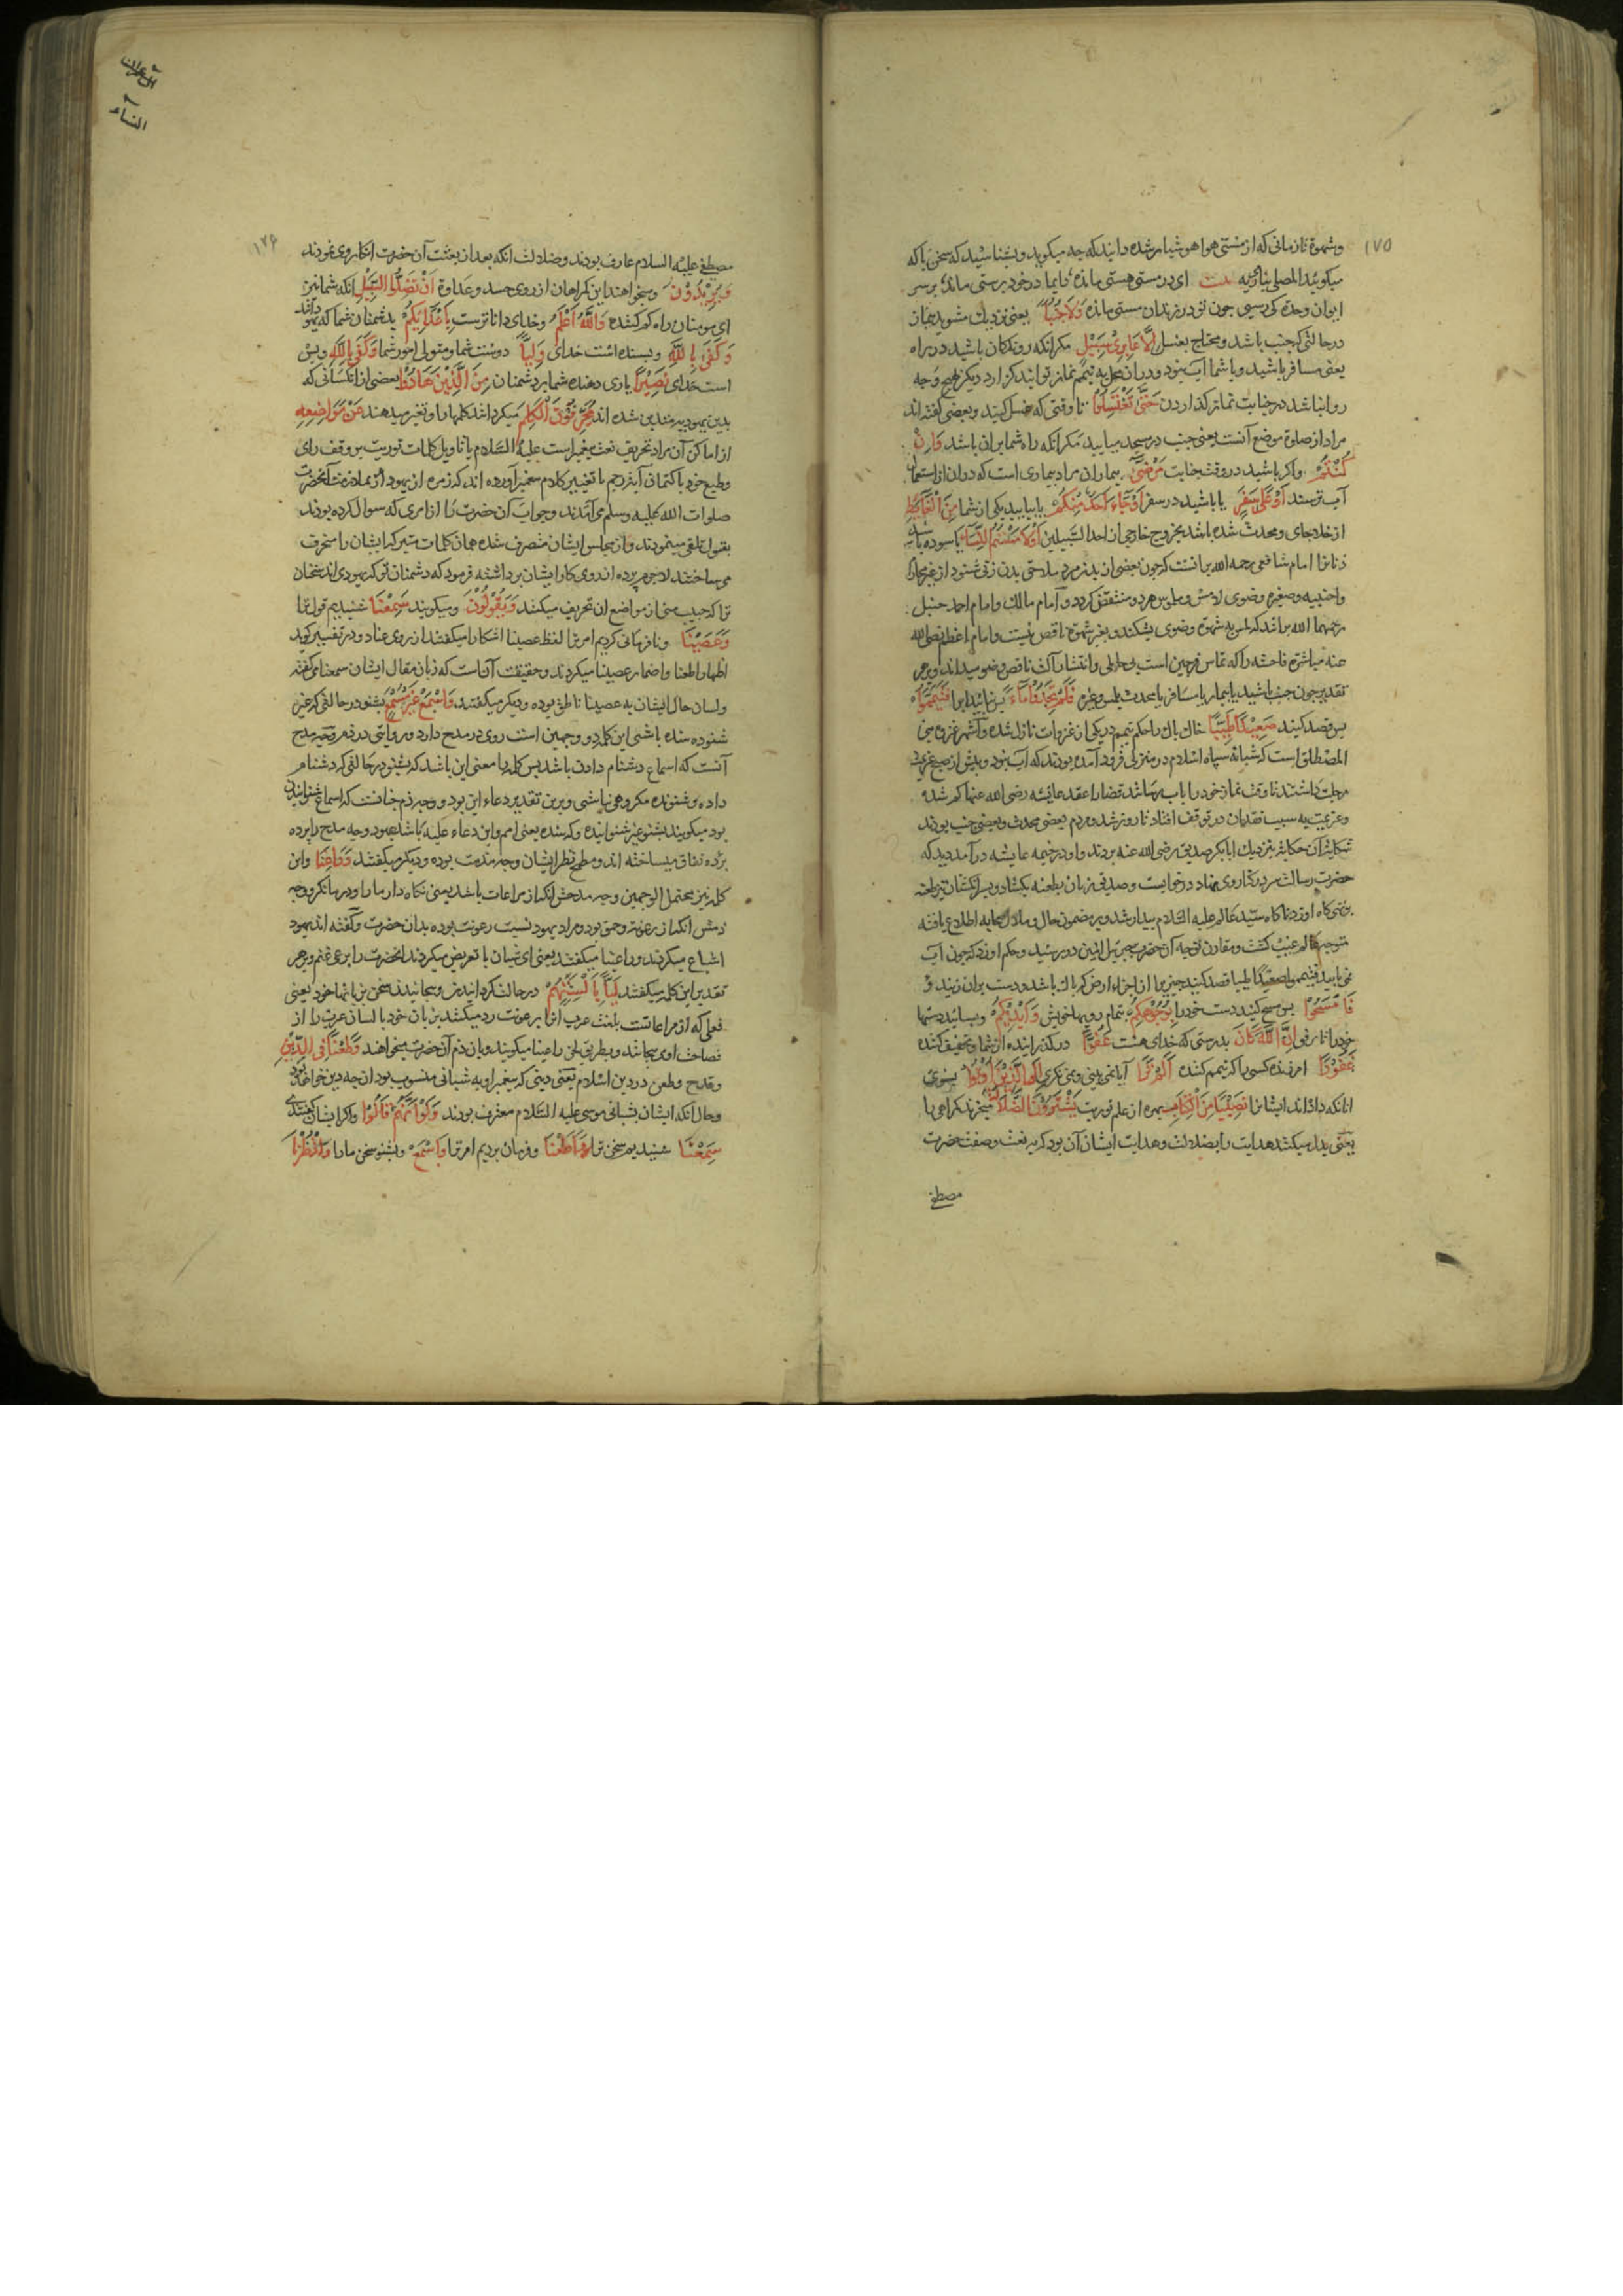 ١٧٥
وشهوة تا زمانی که از مستی هوا هوشیار شده دانید که چه میکویید و بشناسید که سخن با که
میکویید المصلی یناجی ربه بیت ای در مستی هستی مانده دایما در خود پرستی مانده بر سر
ایوان وحدة کی رسی چون تو در زندان مستی مانده وَلَا جُنُبًا یعنی نزدیک مشوید بنماز
درحالتی که جنب باشد و محتاج بغسل اِلَّا عَابِرِی سَبِیْلٍ مکر انکه روندکان باشید در راه
یعنی مسافر باشید و با شما آب نبود و دران محل به تیمم نماز توانید کزارد دیکر بهیچ وجه
روا نباشد در جنابت نماز کذاردن حَتّٰی تَغْتَسِلُوْا تا وقتی که غسل کنید و بعضی کفته اند
مراد از صلوة موضع آنست یعنی جنب در مسجد میایید مکر انکه راه شما بران باشد وَاِنْ
کُنْتُمْ واکر باشید در وقت جنابت مَرْضٰی بیماران مراد بیماری است که دران از استعمال
آب ترسند اَوْ عَلٰی سَفَرٍ یا باشید در سفر اَوْ جَاءَ اَحَدٌ مِنْکُمْ یا بیاید یکی از شما مِنَ الْغَائِطِ
از خلاجای و محدث شده باشد بخروج خارجی از احد السبیلین اَوْ لَامَسْتُمُ النِّسَاءَ یا سوده باشید
زنانرا امام شافعی رحمه الله برانست که چون بعضی از بدن مرد ملاقی بدن زنی شود از غیر محارم
واجنبیه و صغیره وضوی لامس و ملموس هر دو منتقض کردد و امام مالک و امام احمد حنبل
رحمهما الله برانند که لمس به شهوة وضوی بشکند و بغیر شهوة ناقض نیست و امام اعظم رضی الله
عنه مباشرة فاحشه را که تماس فرجین است بی حایلی وانتشار آلت ناقض وضو میداند و برهر
تقدیر چون جنب باشید یا بیمار یا مسافر یا محدث بلمس وغیره فَلَمْ تَجِدُوْا مَاءً پس نیابید ابرا فَتَیَمَّمُوْا
پس قصد کنید صَعِیْدًا طَیِّبًا خاک پاک را حکم تیمم در یکی از غزوات نازل شده و اشهر غزوه بنی
المصطلق است که شبانه سپاه اسلام در منزلی فرود آمده بودند که آب نبود و پیش از صبح عزیمت
رحلت داشتند تا وقت نماز خود را باب رسانند قضا را عقد عایشه رضی الله عنها کم شده
وعزیمت به سبب فقدان در توقف افتاد تا روز شد و مردم بعضی محدث و بعضی جنب بودند
شکایت آن حکایت بنزدیک ابابکر صدیق رضی الله عنه بردند و او در خیمه عایشه درآمد دید که
حضرت رسالت سر در کنار وی نهاده در خوابست و صدیق زبان بطعنه بکشاد و سر انکشتان تیز طعنه
تهی کاه او زد ناکاه سید عالم علیه السلام بیدار شد و بر مضمون حال و ملال صحابه اطلاع یافته
متوجه عالم غیب کشت و مقارن توجه آن حضرت جبرئیل امین در رسید و حکم اورد که چون آب
نمی یابید فتیمموا صعیدا طیبا قصد کنید چیزیرا از اجزاء ارض که پاک باشد و دست بران زنید و
فَامْسَحُوْا پس مسح کنید دست خود را بِوُجُوْهِکُمْ بتمام رویهای خویش وَاَیْدِیْکُمْ و بسایید دستها
خود را تا مرفق اِنَّ اللّٰهَ کَانَ بدرستی که خدای هست عَفُوًّا درکذراننده از شما و تخفیف کننده
غَفُوْرًا امرزنده کسی را که تیمم کننده اَلَمْ تَرَ آیا نمی بینی و نمی نکری اِلَی الَّذِیْنَ اُوْتُوْا بسوی
انانکه داده اند ایشانرا نَصِیْبًا مِنَ الْکِتَابِ بهره از علم توریت یَشْتَرُوْنَ الضَّلَالَةَ میخرند کمراهی را
یعنی بدل میکنند هدایت را بضلالت و هدایت ایشان آن بود که به نعت و صفت حضرت
مصطفی
آل عمران
النساء
١٧٦
مصطفی علیه السلام عارف بودند و ضلالت انکه بعد از بعثت آن حضرت انکار وی نمودند
وَیُرِیْدُوْنَ ومیخواهند این کمراهان از روی حسد و عداوة اَنْ تَضِلُّوا السَّبِیْلَ انکه شما نیز
ای مومنان راه کم کنید وَاللّٰهُ اَعْلَمُ وخدای داناترست بِاَعْدَائِکُمْ بدشمنان شما که یهود اند
وَکَفٰی بِاللّٰهِ وبسنده است خدای وَلِیًّا دوست شما و متولی امور شما وَکَفٰی بِاللّٰهِ وبس
است خدای نَصِیْرًا یاری دهنده شما بر دشمنان مِنَ الَّذِیْنَ هَادُوْا بعضی از انکسانی که
بدین یهودیه متدین شده اند یُحَرِّفُوْنَ الْکَلِمَ میکردانند کلمها را و تغیر میدهند عَنْ مَوَاضِعِهٖ
از اماکن آن مراد تحریف نعت پیغمبر است علیه السلام یا تاویل کلمات توریت بر وفق رای
وطبع خود یا کتمان آیة رجم یا تغییر کلام پیغمبر آورده اند که زمره از یهود بملازمت آنحضرت
صلوات الله علیه وسلم می آمدند و جواب آن حضرت را از امری که سوال کرده بودند
بقبول تلقی مینمودند و از مجلس ایشان منصرف شده همان کلمات متبرکه ایشان را منحرف
می ساختند لاجرم پرده از روی کار ایشان برداشته فرمود که دشمنان تو که یهودی اند سخنان
ترا که حبیب منی از مواضع ان تحریف میکنند وَیَقُوْلُوْنَ ومیکویند سَمِعْنَا شنیدیم قول ترا
وَعَصَیْنَا و نافرمانی کردیم امر ترا لفظ عصینا اشکارا میکفتند از روی عناد و در تفسیر کوید
اظهار اطعنا و اضمار عصینا میکردند و حقیقت آن است که زبان مقال ایشان سمعنا می کفته
ولسان حال ایشان به عصینا ناطق بوده و دیکر میکفتند وَاسْمَعْ غَیْرَ مُسْمَعٍ بشنو در حالتی که غیر
شنوده شده باشی این کلمه ذو وجهین است روی در مدح دارد و روایتی در ذم وجه مدح
آنست که اسماع دشنام دادن باشد پس کلمه را معنی این باشد که بشنو در حالتی که دشنام
داده و شنونده مکروهی نباشی و برین تقدیر دعاء این بود و وجه ذم چنانست که اسماع شنوانیدن
بود میکویند بشنو غیر شنوانیده و کر شده یعنی اصم و این دعاء علیه باشد یهود وجه مدح را پرده
پرده نفاق میساخته اند و مطمح نظر ایشان وجه مذمت بوده و دیکر میکفتند وَرَاعِنَا واین
کلمه نیز محتمل الوجهین وجه مدحش انکه از مراعات باشد یعنی نکاه دار ما را و در ما نکر و وجه
ذمش انکه از رعونة و حمق بود و مراد یهود نسبت رعونت بوده بدان حضرت و کفته اند یهود
اشباع میکردند و راعینا میکفتند یعنی ای شبان یا تعریض میکردند انحضرت را برعی غنم و بر هر
تقدیر این کلمه میکفتند لَیًّا بِاَلْسِنَتِهِمْ در حالت کردانیدن و پیچانیدن سخن بزبانها خود یعنی
فعلی که از مراعاتست بلغت عرب انرا برعونت رد میکنند بزبان خود یا لسان عرب را از
فصاحت او می پیچانند و بطریق لحن راعینا میکویند و بان ذم آن حضرت میخواهند وَطَعْنًا فِی الدِّیْنِ
وقدح و طعن در دین اسلام یعنی دینی که پیغمبر او به شبانی منسوب بود ان چه دین خواهد بود
وحال انکه ایشان بشبانی موسی علیه السلام معترف بودند وَلَوْ اَنَّهُمْ قَالُوْا واکر ایشان کفتندی
سَمِعْنَا شنیدیم سخن ترا وَاَطَعْنَا وفرمان بردیم امر ترا وَاسْمَعْ وبشنو سخن ما را وَانْظُرْنَا